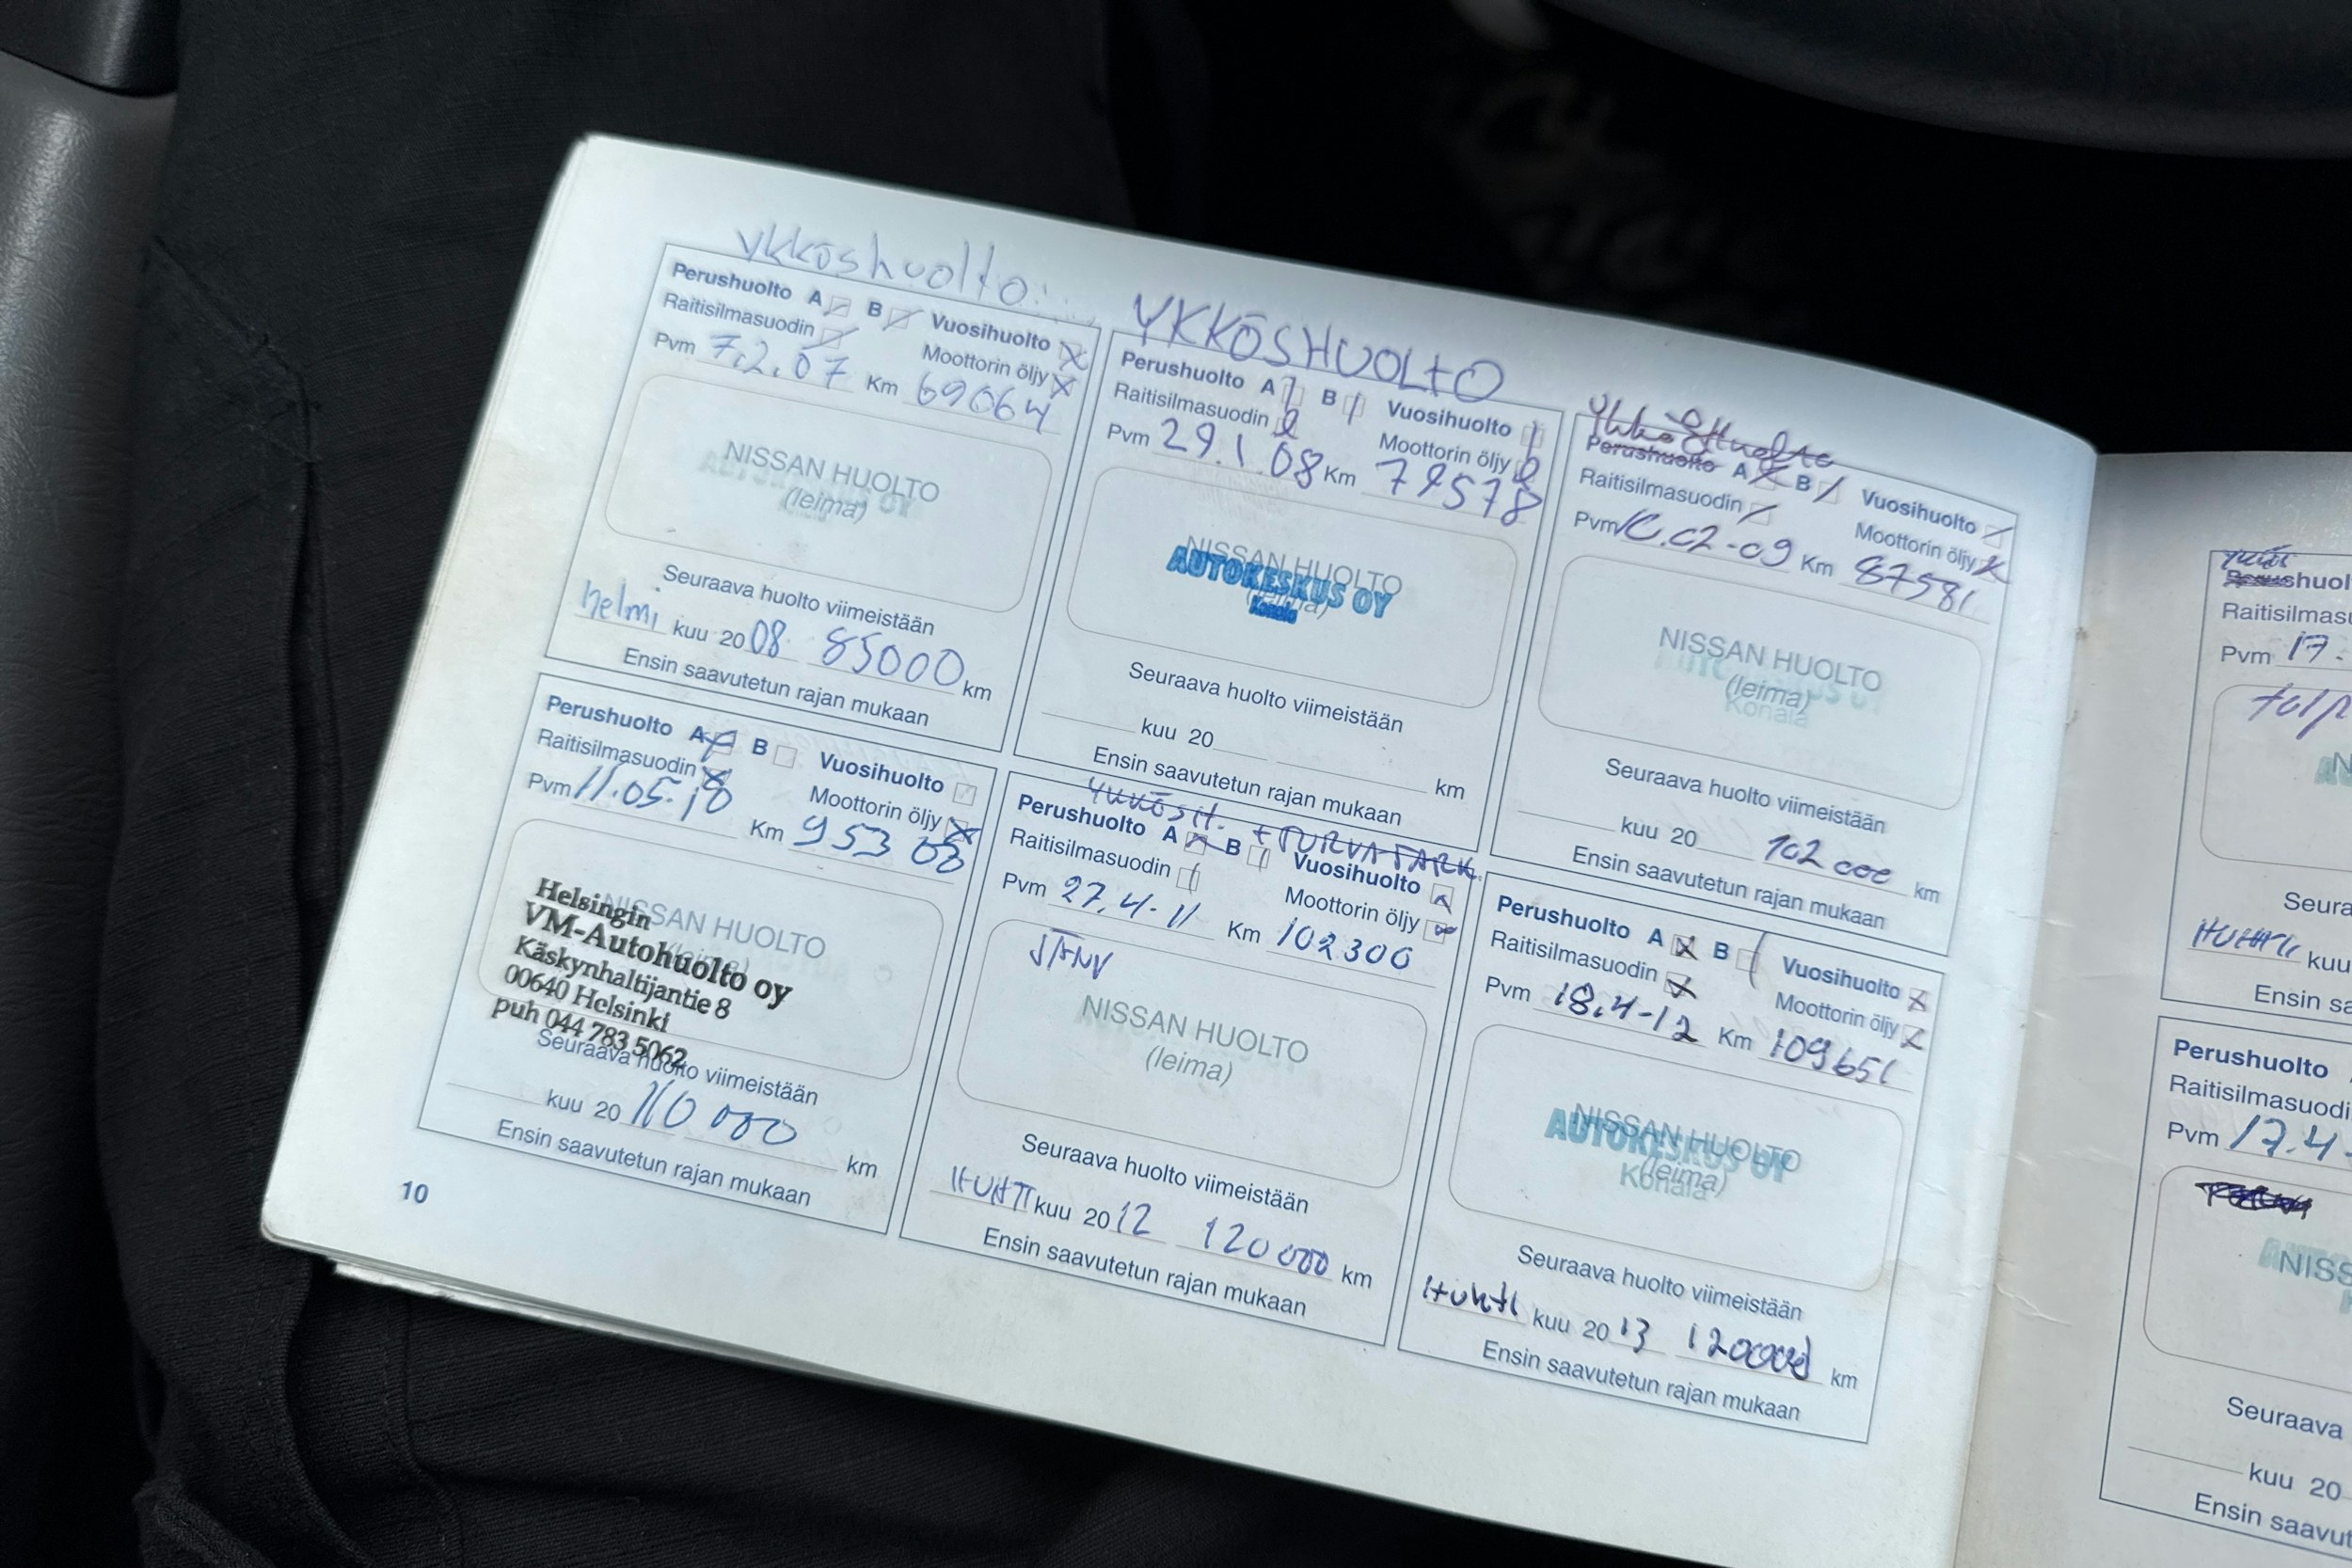 ykköshuolto
Perushuolto A B Vuosihuolto
Raitisilmasuodin Moottorin öljy
Pvm 7.2.07 Km 69064
NISSAN HUOLTO
(leima)
Seuraava huolto viimeistään
helmi kuu 2008 85000 km
Ensin saavutetun rajan mukaan
YKKÖSHUOLTO
Perushuolto A B Vuosihuolto
Raitisilmasuodin Moottorin öljy
Pvm 29.1.08 Km
NISSAN HUOLTO
(leima)
AUTOKESKUS OY
Konala
Seuraava huolto viimeistään
kuu 20 km
Ensin saavutetun rajan mukaan
Perushuolto A B Vuosihuolto
Raitisilmasuodin Moottorin öljy
Pvm Km 87581
NISSAN HUOLTO
(leima)
Konala
Seuraava huolto viimeistään
kuu 20 102 000 km
Ensin saavutetun rajan mukaan
Perushuolto A B Vuosihuolto
Raitisilmasuodin Moottorin öljy
Pvm Km
NISSAN HUOLTO
Helsingin
VM-Autohuolto oy
Käskynhaltijantie 8
00640 Helsinki
puh 044 783 5062
Seuraava huolto viimeistään
kuu 20 110 000 km
Ensin saavutetun rajan mukaan
YKKÖSH. + TURVATARK.
Perushuolto A B Vuosihuolto
Raitisilmasuodin Moottorin öljy
Pvm 27.4-11 Km 102300
NISSAN HUOLTO
(leima)
Seuraava huolto viimeistään
HUHTI kuu 2012 120 000 km
Ensin saavutetun rajan mukaan
Perushuolto A B Vuosihuolto
Raitisilmasuodin Moottorin öljy
Pvm 18.4-12 Km 109651
NISSAN HUOLTO
(leima)
AUTOKESKUS OY
Konala
Seuraava huolto viimeistään
Huhti kuu 2013 120000 km
Ensin saavutetun rajan mukaan
10
Pvm 17.
HUHTI kuu
Perushuolto
Pvm 17.4-
Seuraava
kuu 20